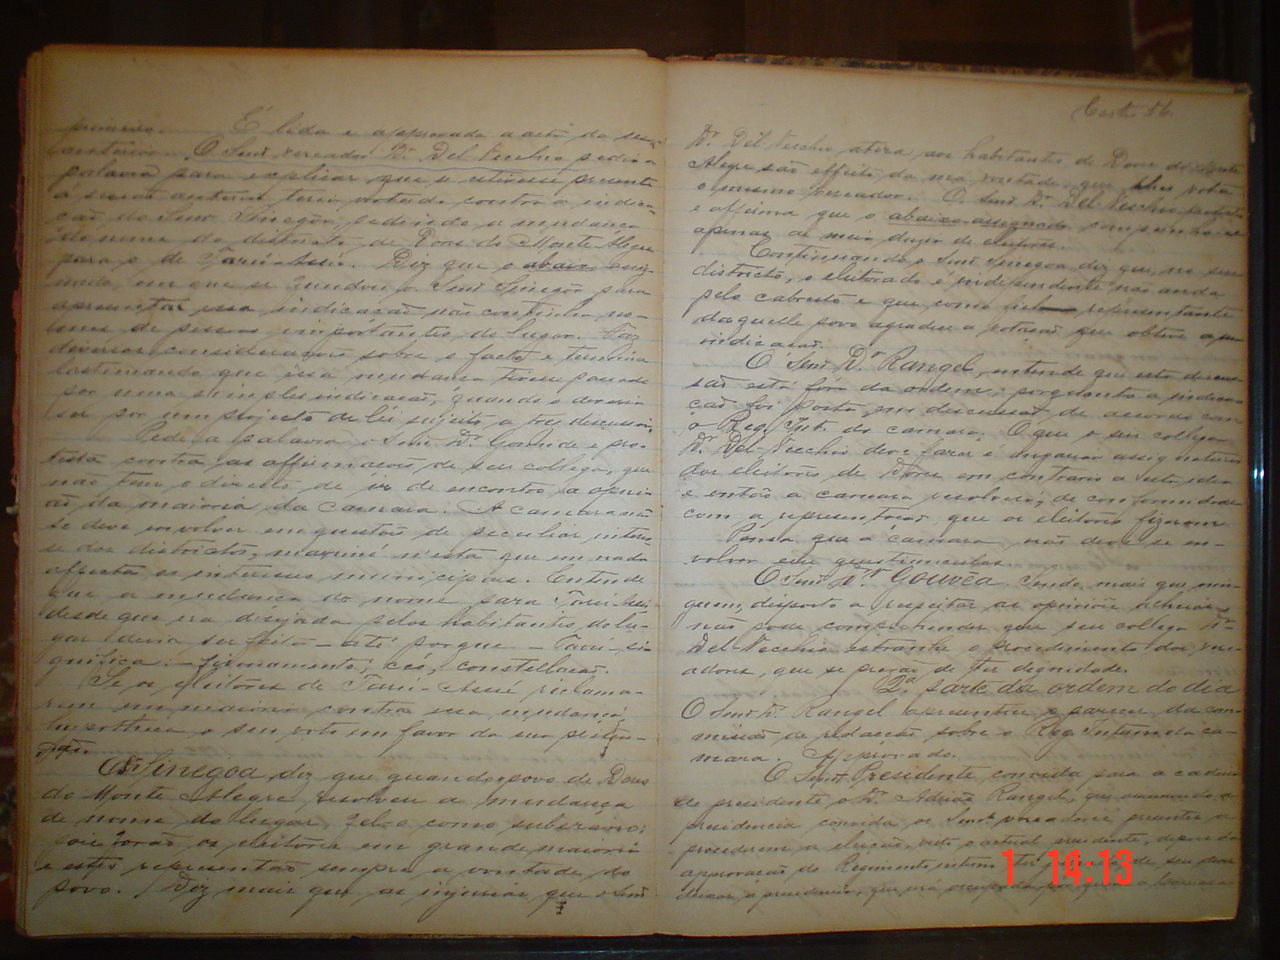 primeiro. É lida e approvada a acta da ses-
anterior. O Snr. vereador Dr. Del-Vecchio pedio a
palavra para explicar que se estivesse presente
á sessão anterior teria votado contra a indica-
ção do Snr. Sinegoa, pedindo a mudança
do nome do districto de Dores do Monte Alegre
para o de Tarú-Assú. Diz que o abaixo assig-
nado, em que se fundou o Snr. Sinegoa para
apresentar essa indicação não continha no-
mes de pessoas importantes do lugar. Faz
diversas considerações sobre o facto e termina
lastimando que essa mudança tivesse passado
por uma simples indicação, quando o deveria
ser por um projecto de lei sujeito a tres discussões
Pede a palavra o Snr. Dr. Gouvêa e pro-
testa contra as affirmações de seu collega, que
não tem o direito de ir de encontro a opini-
ão da maioria da Camara. A camara não
se deve envolver em questões de peculiar interes-
se dos districtos, maximé n'esta que em nada
affecta os interesses municipaes. Entende
que a mudança do nome para Tarú-Assú
desde que era desejada pelos habitantes do lu-
gar devia ser feita - até porque - Tarú - si-
gnifica: - firmamento; ceo, constellação.
Se os eleitores de Tarú-Assú reclama-
rem em maioria contra essa mudança
hypotheca o seu voto em favor da sua preten-
ção.
O Snr. Sinegoa diz que quando o povo de Dores
do Monte Alegre resolveu a mudança
de nome do lugar, fel-o como soberano;
pois forão os eleitores em grande maioria
e estes representão sempre a vontade do
povo. Diz mais que as injurias que o Snr.
Dr. Del-Vecchio atira aos habitantes de Dores do Monte
Alegre são effeito da má vontade que lhes vota
o mesmo vereador. O Snr. Dr. Del-Vecchio protesta
e affirma que o abaixo-assignado compunha-se
apenas de meia duzia de eleitores.
Continuando o Snr. Sinegoa diz que, no seu
districto, o eleitorado é independente não anda
pelo cabresto e que como fiel representante
daquelle povo agradece a votação que obteve a sua
indicação.
O Snr. Dr. Rangel, entende que esta discus-
são está fóra da ordem; porquanto a indica-
ção foi posta em discussão de accordo com
o Reg. Int. da camara. O que o seu collega
Dr. Del-Vecchio deve fazer é angariar assignaturas
dos eleitores de Dores em contrario a esta idea
e então a camara resolverá, de conformidade
com a representação que os eleitores fizerem
Pensa que a camara não deve se en-
volver em questiunculas.
O Snr. Dr. Gouvêa sendo, mais que nin-
guem, disposto a respeitar as opiniões alheias
não póde comprehender que seu collega Dr.
Del-Vecchio estranhe o procedimento dos vere-
adores, que se presão de ter dignidade.
2ª parte da ordem do dia
O Snr. Dr. Rangel apresentou o parecer da com-
missão de redacção sobre o Reg. Interno da ca-
mara. Approvado.
O Snr. Presidente convida para a cadeira
de presidente o Dr. Adrião Rangel, que assumindo a
presidencia convida os Snrs. vereadores presentes a
procederem a eleição, visto o actual presidente, depois da
approvação do Regimento interno ter
deixar a presidencia, que
1 14:13